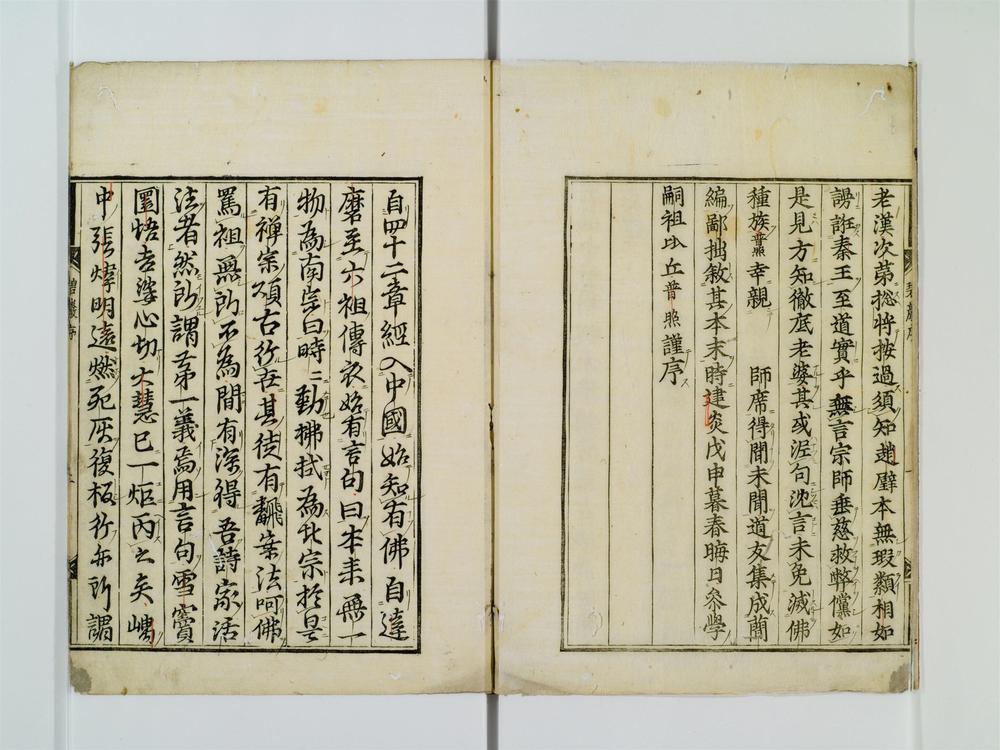 老漢次第捴將按過須知趙璧本無瑕纇相如
謾誑秦王至道實乎無言宗師垂慈救弊儻如
是見方知徹底老婆其或泥句沈言未免滅佛
種族普照幸親　師席得聞未聞道友集成蕳
編鄙拙敘其本末時建炎戊申暮春晦日参學
嗣祖比丘普照謹序
碧巖序
自四十二章經入中國始知有佛自達
磨至六祖傳衣始有言句曰本来無一
物為南宗曰時〻勤拂拭為北宗於是
有禅宗頌古行世其徒有翻案法呵佛
罵祖無所不為間有深得吾詩家活
法者然所謂第一義焉用言句雪竇
圜悟老婆心切大慧已一炬丙之矣嵎
中張煒明遠燃死灰復板行亦所謂
碧巖序